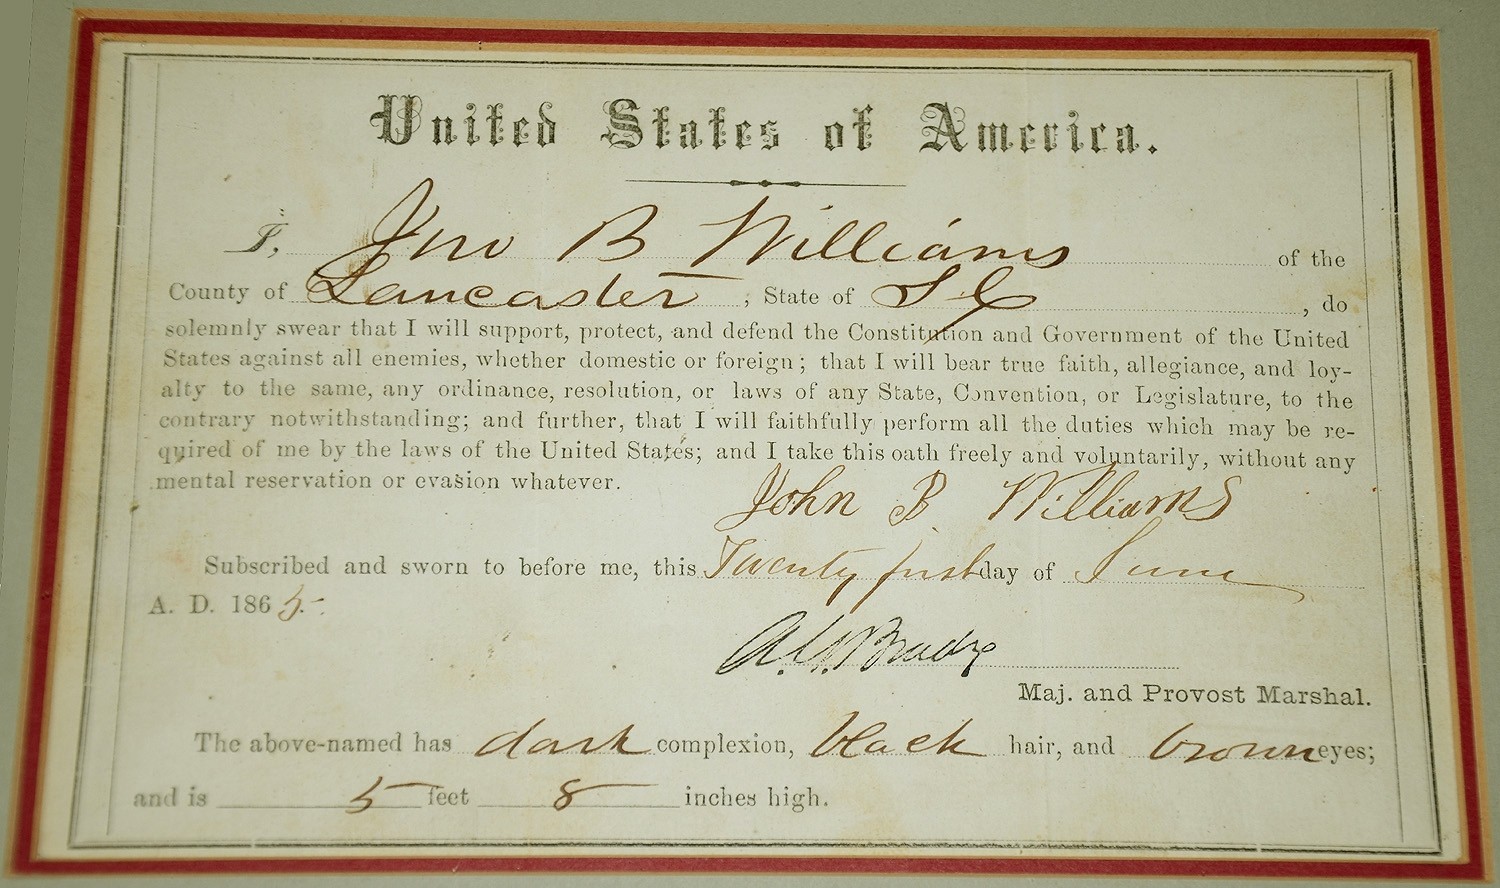 United States of America.
I, Jno B Williams of the
County of Lancaster, State of S C, do
solemnly swear that I will support, protect, and defend the Constitution and Government of the United
States against all enemies, whether domestic or foreign; that I will bear true faith, allegiance, and loy-
alty to the same, any ordinance, resolution, or laws of any State, Convention, or Legislature, to the
contrary notwithstanding; and further, that I will faithfully perform all the duties which may be re-
quired of me by the laws of the United States; and I take this oath freely and voluntarily, without any
mental reservation or evasion whatever.
John B Williams
Subscribed and sworn to before me, this Twenty first day of June
A. D. 1865.
Maj. and Provost Marshal.
The above-named has dark complexion, black hair, and brown eyes;
and is 5 feet 8 inches high.